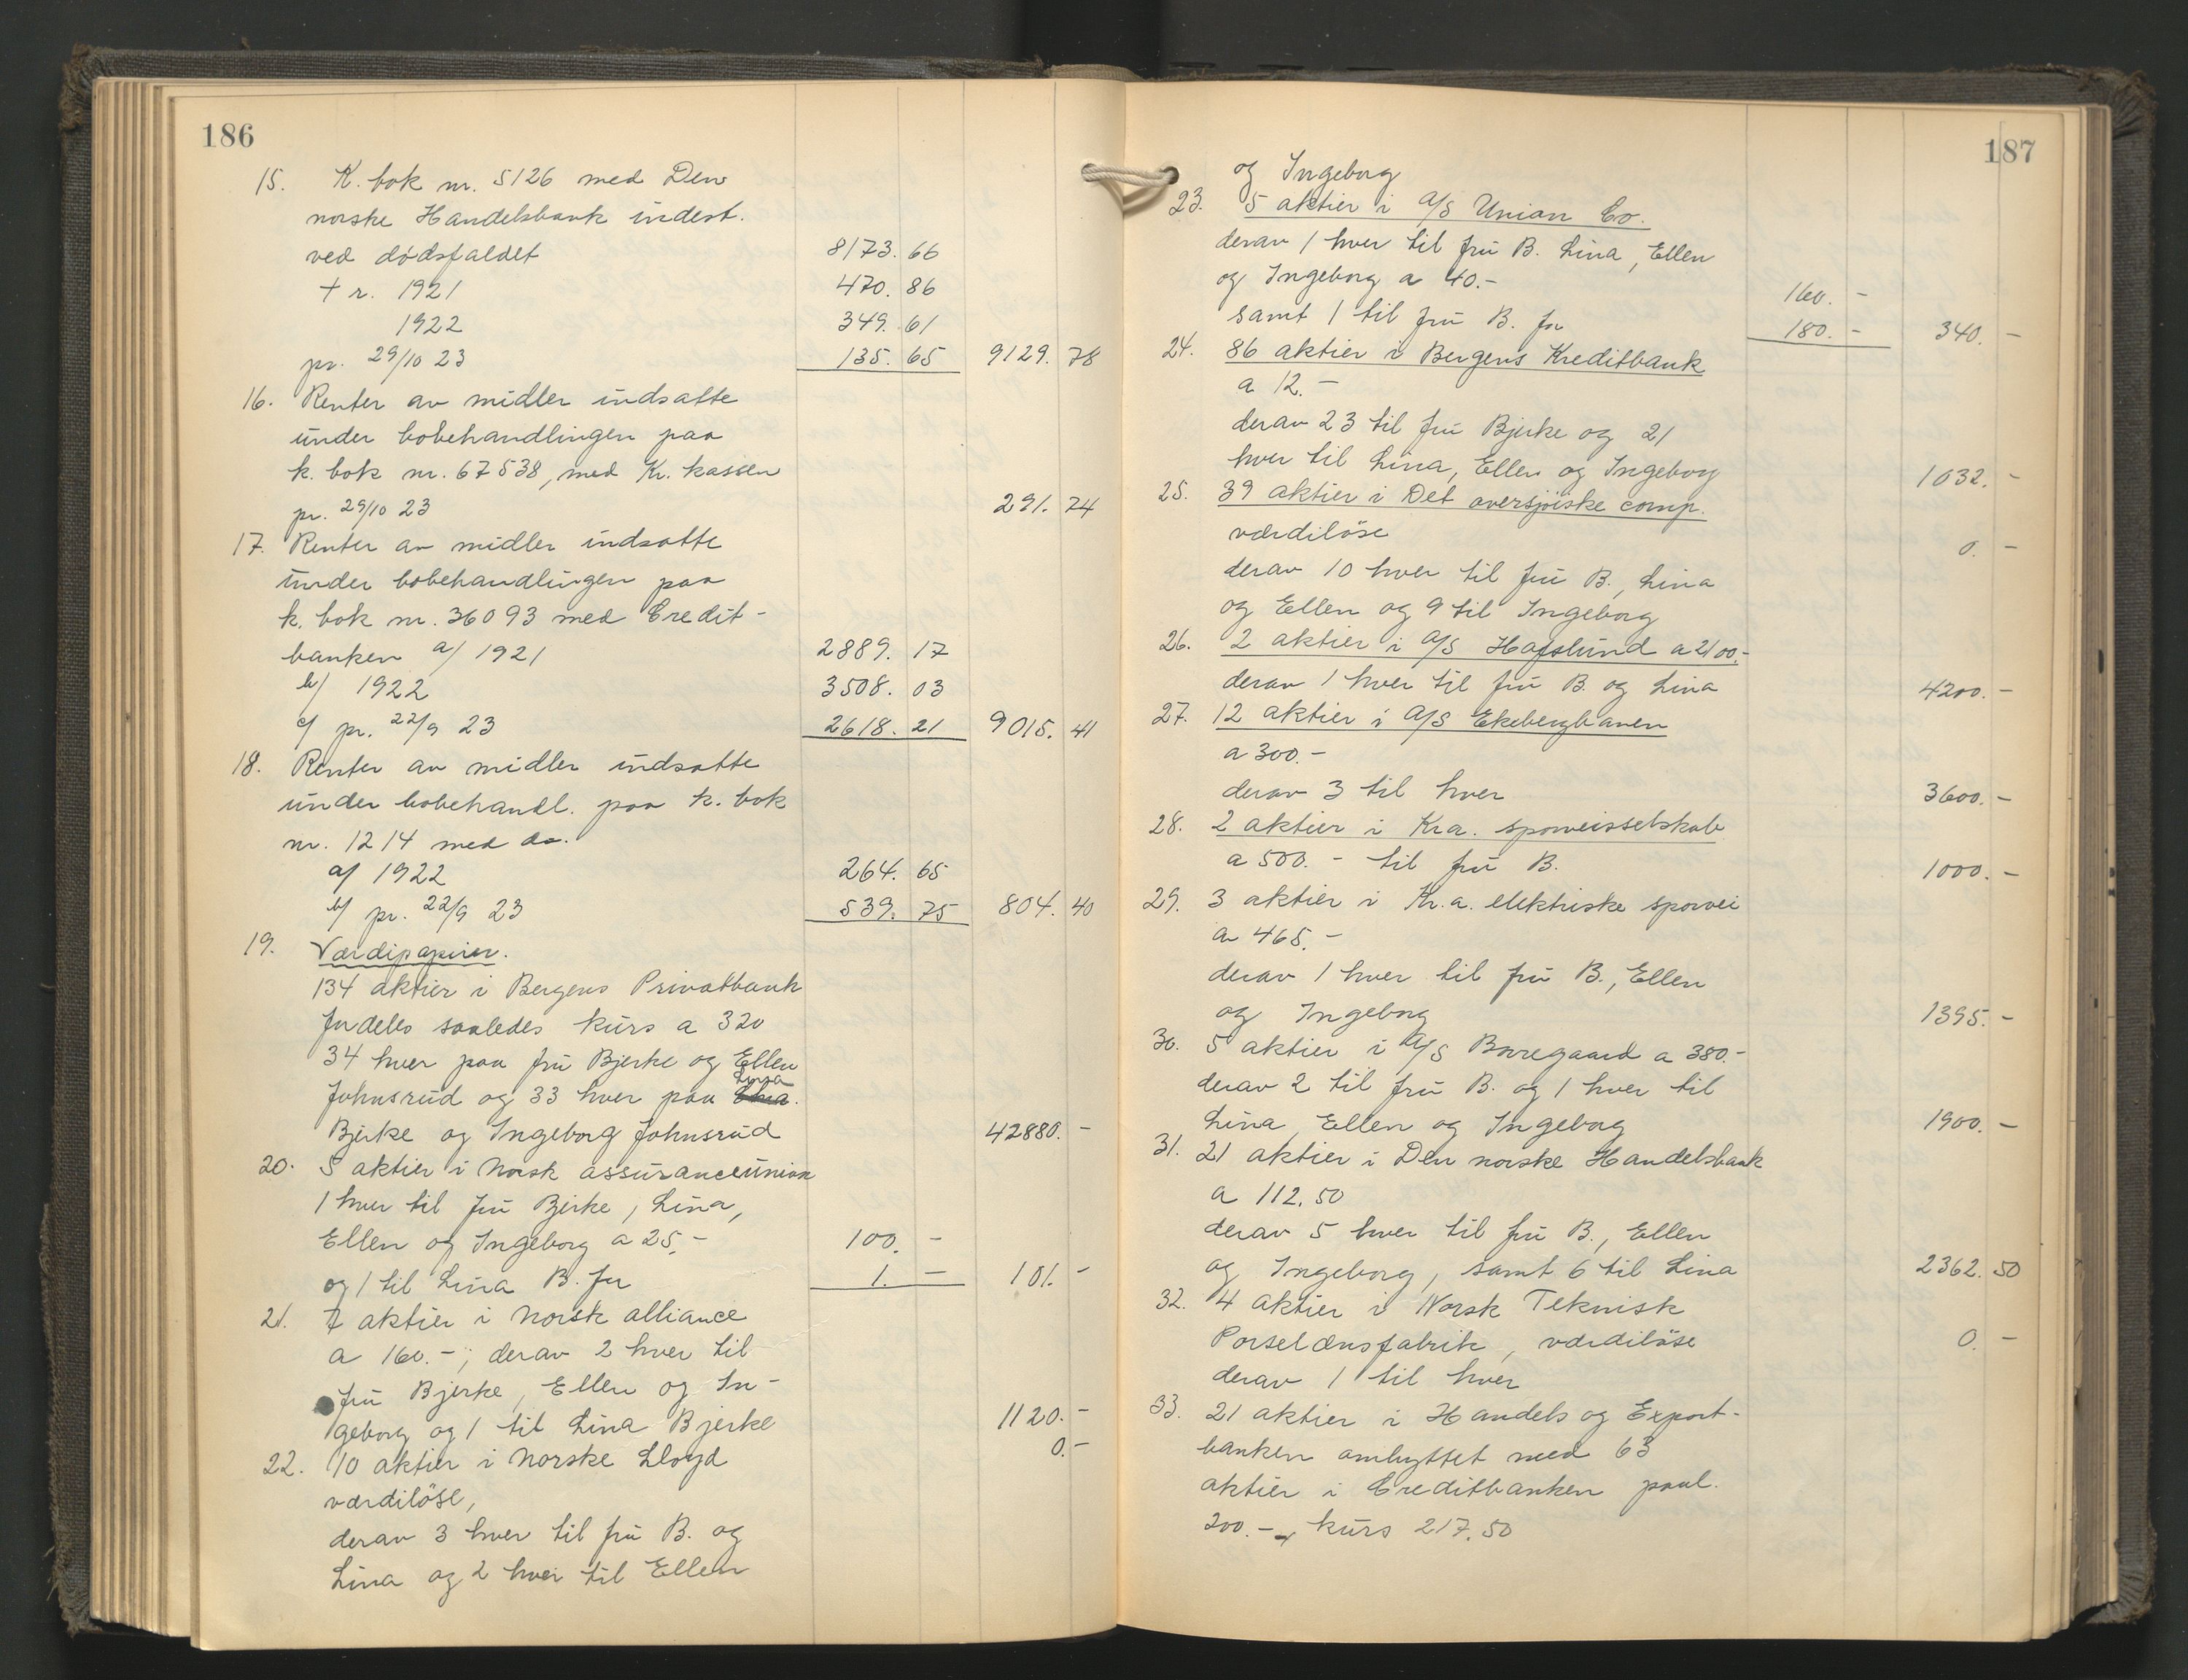 186
15. K. bok nr. 5126 med Den
norske Handelsbank indest.
ved dødsfaldet 8173. 66
+ r. 1921 470. 86
1922 349. 61
pr. 29/10 23 135. 65 9129. 78
16. Renter av midler indsatte
under bobehandlingen paa
k. bok nr. 67538, med Kr. kassen
pr. 29/10 23 291. 74
17. Renter av midler indsatte
under bobehandlingen paa
k. bok nr. 36093 med Credit-
banken a/ 1921 2889. 17
b/ 1922 3508. 03
c/ pr. 22/9 23 2618. 21 9015. 41
18. Renter av midler indsatte
under bobehandl. paa k. bok
nr. 1214 med do.
a/ 1922 264. 65
b/ pr. 22/9 23 539. 75 804. 40
19. Værdipapirer.
134 aktier i Bergens Privatbank
fordeles saaledes kurs a 320
34 hver paa fru Bjerke og Ellen
Lina
Johnsrud og 33 hver paa
Bjerke og Ingeborg Johnsrud 42880. -
20. 5 aktier i Norsk assuranceunion
1 hver til fru Bjerke, Lina,
Ellen og Ingeborg a 25,- 100. -
og 1 til Lina B. for 1. - 101. -
21. 7 aktier i Norsk alliance
a 160.-; derav 2 hver til
fru Bjerke, Ellen og In-
geborg og 1 til Lina Bjerke 1120. -
22. 10 aktier i Norske Lloyd 0. -
værdiløse,
derav 3 hver til fru B. og
Lina og 2 hver til Ellen
187
og Ingeborg
23. 5 aktier i A/S Union Co.
derav 1 hver til fru B. Lina, Ellen
og Ingeborg a 40.- 160. -
samt 1 til fru B. for 180. - 340. -
24. 86 aktier i Bergens Kreditbank
a 12.-
derav 23 til fru Bjerke og 21
hver til Lina, Ellen og Ingeborg 1032. -
25. 39 aktier i Det oversjøiske comp.
værdiløse 0. -
derav 10 hver til fru B., Lina
og Ellen og 9 til Ingeborg
26. 2 aktier i A/S Hafslund a 2100.-
derav 1 hver til fru B. og Lina 4200. -
27. 12 aktier i A/S Ekebergbanen
a 300.-
derav 3 til hver 3600. -
28. 2 aktier i Kra. sporveisselskab
a 500.- til fru B. 1000. -
29. 3 aktier i Kr.a. elektriske sporvei
a 465.-
derav 1 hver til fru B., Ellen
og Ingeborg 1395. -
30. 5 aktier i A/S Borregaard a 380.-
derav 2 til fru B. og 1 hver til
Lina, Ellen og Ingeborg 1900. -
31. 21 aktier i Den norske Handelsbank
a 112.50
derav 5 hver til fru B., Ellen
og Ingeborg, samt 6 til Lina 2362. 50
32. 4 aktier i Norsk Teknisk
Porselænsfabrik, værdiløse 0. -
derav 1 til hver
33. 21 aktier i Handels og Export-
banken ombyttet med 63
aktier i Creditbanken paal.
200.-, kurs 217.50